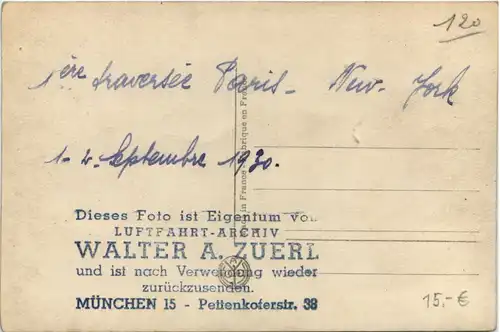 120
1ère traversée Paris - New-York
1-2 Septembre 1930.
Fabrique en Fra
in France
Dieses Foto ist Eigentum vo
LUFTFAHRT-ARCHIV
WALTER A. ZUERL
und ist nach Verwendung wieder
zurückzusenden.
MÜNCHEN 15 - Pettenkoferstr. 38
15,-€